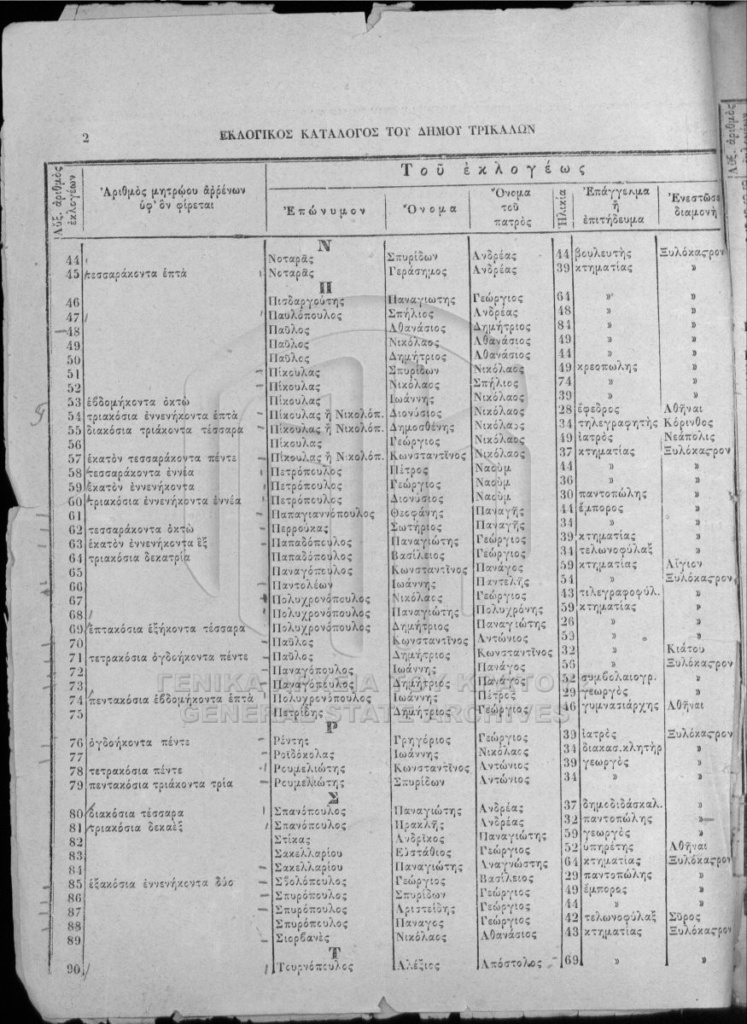 2 ΕΚΛΟΓΙΚΟΣ ΚΑΤΑΛΟΓΟΣ ΤΟΥ ΔΗΜΟΥ ΤΡΙΚΑΛΩΝ
Αὔξ. ἀριθμὸς ἐκλογέων
Ἀριθμὸς μητρῴου ἀρρένων ὑφ' ὃν φέρεται
Τοῦ ἐκλογέως
Ἐπώνυμον Ὄνομα Ὄνομα τοῦ πατρὸς Ἡλικία Ἐπάγγελμα ἢ ἐπιτήδευμα Ἐνεστῶσα διαμονὴ
Ν
44 Νοταρᾶς Σπυρίδων Ἀνδρέας 44 βουλευτὴς Ξυλόκαστρον
45 τεσσαράκοντα ἑπτὰ Νοταρᾶς Γεράσιμος Ἀνδρέας 39 κτηματίας »
Π
46 Πισδαργούτης Παναγιώτης Γεώργιος 64 » »
47 Παυλόπουλος Σπήλιος Ἀνδρέας 48 » »
48 Παῦλος Ἀθανάσιος Δημήτριος 84 » »
49 Παῦλος Νικόλαος Ἀθανάσιος 49 » »
50 Παῦλος Δημήτριος Ἀθανάσιος 44 » »
51 Πίκουλας Σπυρίδων Νικόλαος 49 κρεοπώλης »
52 Πίκουλας Νικόλαος Σπήλιος 74 » »
53 ἑβδομήκοντα ὀκτὼ Πίκουλας Ἰωάννης Νικόλαος 39 » »
54 τριακόσια ἐννενήκοντα ἑπτὰ Πίκουλας ἢ Νικολόπ. Διονύσιος Νικόλαος 28 ἔφεδρος Ἀθῆναι
55 διακόσια τριάκοντα τέσσαρα Πίκουλας ἢ Νικολόπ. Δημοσθένης Νικόλαος 34 τηλεγραφητὴς Κόρινθος
56 Πίκουλας Γεώργιος Νικόλαος 49 ἰατρὸς Νεάπολις
57 ἑκατὸν τεσσαράκοντα πέντε Πίκουλας ἢ Νικολόπ. Κωνσταντῖνος Νικόλαος 37 κτηματίας Ξυλόκαστρον
58 τεσσαράκοντα ἐννέα Πετρόπουλος Πέτρος Ναοὺμ 44 » »
59 ἑκατὸν ἐννενήκοντα Πετρόπουλος Γεώργιος Ναοὺμ 36 » »
60 τριακόσια ἐννενήκοντα ἐννέα Πετρόπουλος Διονύσιος Ναοὺμ 30 παντοπώλης »
61 Παπαγιαννόπουλος Θεοφάνης Παναγῆς 44 ἔμπορος »
62 τεσσαράκοντα ὀκτὼ Περρούκας Σωτήριος Παναγῆς 34 » »
63 ἑκατὸν ἐννενήκοντα ἓξ Παπαδόπουλος Παναγιώτης Γεώργιος 39 κτηματίας »
64 τριακόσια δεκατρία Παπαδόπουλος Βασίλειος Γεώργιος 34 τελωνοφύλαξ »
65 Παναγόπουλος Κωνσταντῖνος Πανάγος 59 κτηματίας Αἴγιον
66 Παντολέων Ἰωάννης Παντελῆς 54 » Ξυλόκαστρον
67 Πολυχρονόπουλος Νικόλαος Γεώργιος 43 τιλεγραφοφύλ. »
68 Πολυχρονόπουλος Παναγιώτης Πολυχρόνης 59 κτηματίας »
69 ἑπτακόσια ἑξήκοντα τέσσαρα Πολυχρονόπουλος Δημήτριος Παναγιώτης 26 » »
70 Παῦλος Κωνσταντῖνος Ἀντώνιος 59 » »
71 τετρακόσια ὀγδοήκοντα πέντε Παῦλος Δημήτριος Κωνσταντῖνος 32 » Κιάτου
72 Παναγόπουλος Ἰωάννης Πανάγος 56 » Ξυλόκαστρον
73 Παναγόπουλος Δημήτριος Πανάγος 52 συμβολαιογρ. »
74 πεντακόσια ἑβδομήκοντα ἑπτὰ Πολυχρονόπουλος Ἰωάννης Πέτρος 29 γεωργὸς »
75 Πετρίδης Δημήτριος Γεώργιος 46 γυμνασιάρχης Ἀθῆναι
Ρ
76 ὀγδοήκοντα πέντε Ρέντης Γρηγόριος Γεώργιος 39 ἰατρὸς Ξυλόκαστρον
77 Ροϊδόκολας Ἰωάννης Νικόλαος 34 διακασ.κλητὴρ »
78 τετρακόσια πέντε Ρουμελιώτης Κωνσταντῖνος Ἀντώνιος 39 γεωργὸς »
79 πεντακόσια τριάκοντα τρία Ρουμελιώτης Σπυρίδων Ἀντώνιος 34 » »
Σ
80 διακόσια τέσσαρα Σπανόπουλος Παναγιώτης Ἀνδρέας 37 δημοδιδάσκαλ. »
81 τριακόσια δεκαὲξ Σπανόπουλος Ἡρακλῆς Ἀνδρέας 32 παντοπώλης »
82 Στίκας Ἀνδρῖκος Παναγιώτης 59 γεωργὸς »
83 Σακελλαρίου Εὐστάθιος Γεώργιος 52 ὑπηρέτης Ἀθῆναι
84 Σακελλαρίου Παναγιώτης Ἀναγνώστης 64 κτηματίας Ξυλόκαστρον
85 ἑξακόσια ἐννενήκοντα δύο Σβολόπουλος Γεώργιος Βασίλειος 29 παντοπώλης »
86 Σπυρόπουλος Σπυρίδων Γεώργιος 49 ἔμπορος »
87 Σπυρόπουλος Ἀριστείδης Γεώργιος 44 » »
88 Σπυρόπουλος Πάναγος Γεώργιος 42 τελωνοφύλαξ Σῦρος
89 Σιορβανὲς Νικόλαος Ἀθανάσιος 43 κτηματίας Ξυλόκαστρον
Τ
90 Τουρνόπουλος Ἀλέξιος Ἀπόστολος 69 » »
Αὔξ. ἀριθμὸς
ΓΕΝΙΚΑ ΑΡΧΕΙΑ ΤΟΥ ΚΡΑΤΟΥΣ
GENERAL STATE ARCHIVES